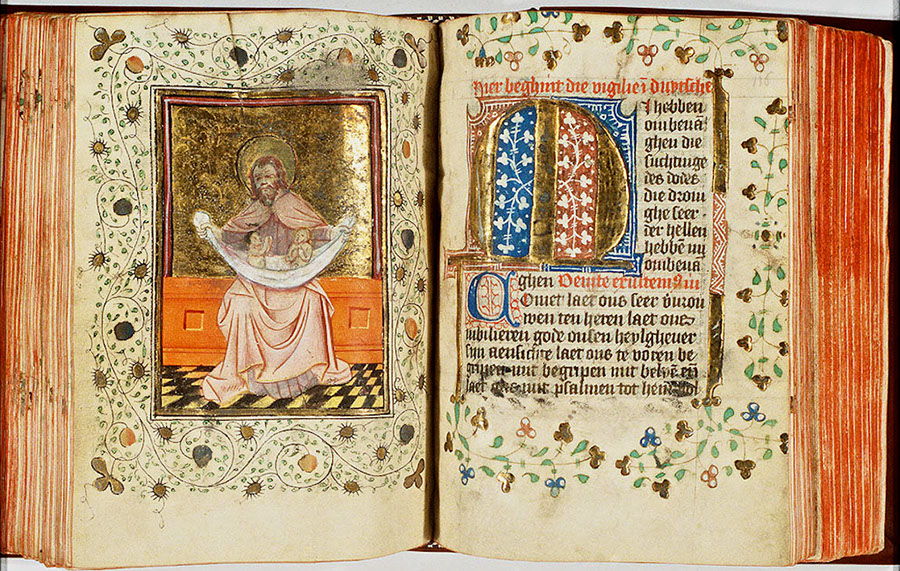 Hier beghint die vigilie ī duytsche
Mi hebben
ombenā
ghen die
suchtinge
des dodes
die droui
ghe seer
der hellen
hebbē mi
ombeua
ghen Venite exultemus
Comet laet ons seer vrou
wen ten heren laet ons
iubilieren gode onsen heylgheuer
syn aensichte laet ons te voren be
gripen mit begripen mit
laet ons mit psalmen tot hem